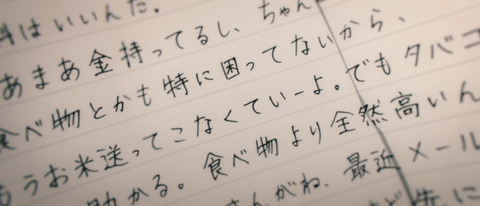 料はいいんだ。
あまあ金持ってるし、ちゃん
食べ物とかも特に困ってないから、
もうお米送ってこなくていーよ。でもタバコ
助かる。食べ物より全然高いん
さんがね、最近メール
先に